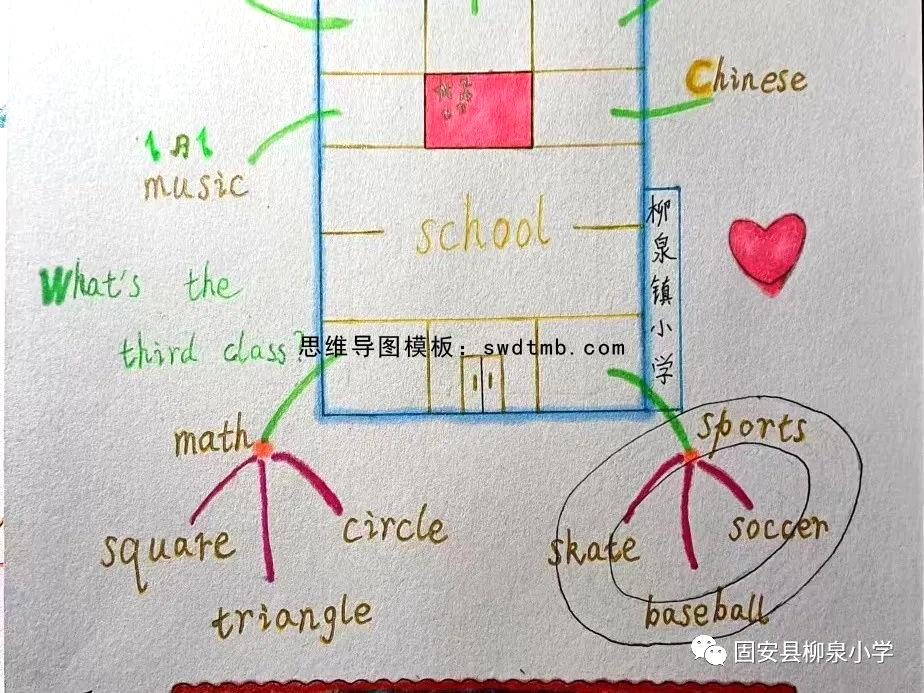 Chinese
music
school
柳泉镇小学
What's the
third class?
思维导图模板：swdtmb.com
math
sports
square
circle
skate
soccer
triangle
baseball
固安县柳泉小学